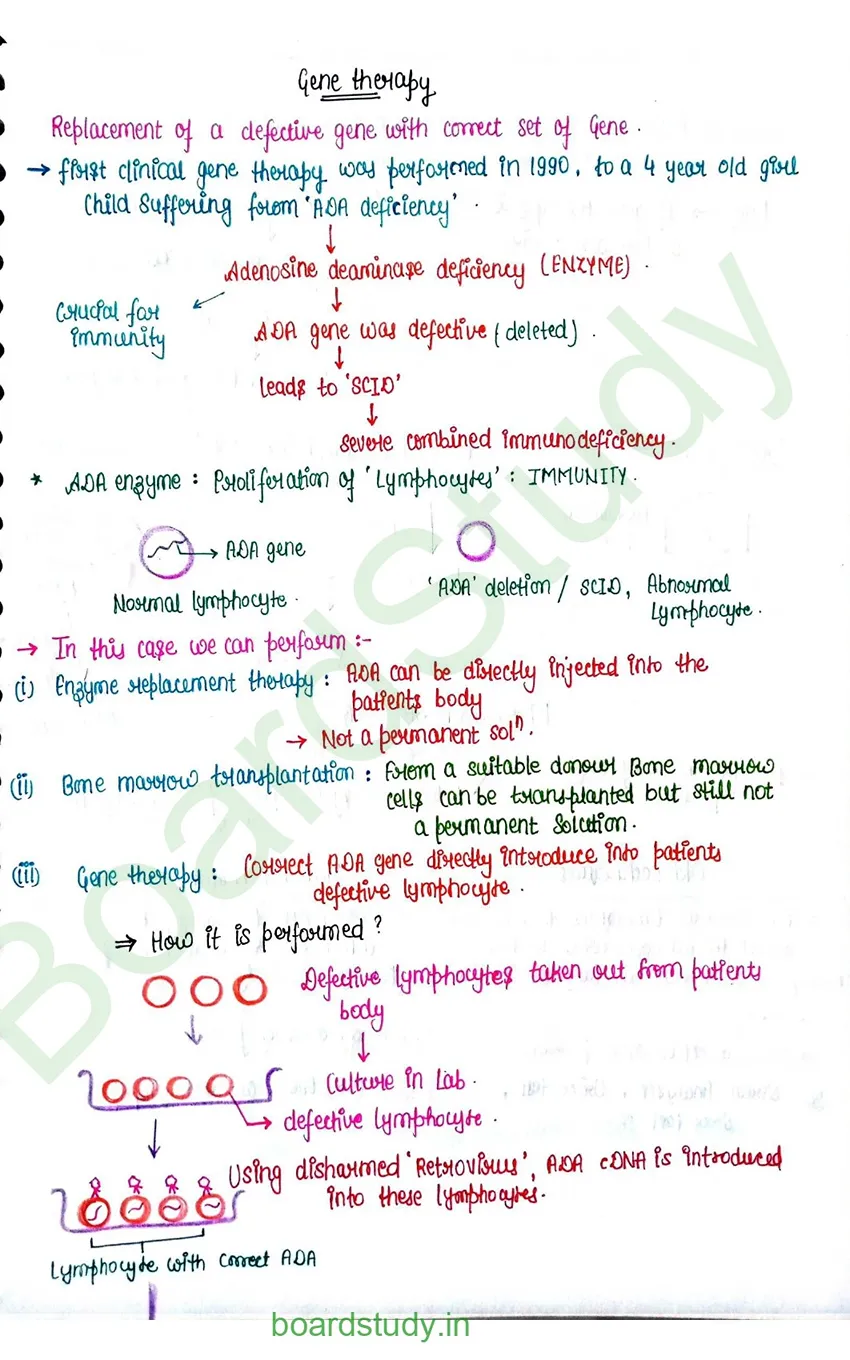 Gene therapy
Replacement of a defective gene with correct set of Gene.
→ first clinical gene therapy was performed in 1990, to a 4 year old girl
Child Suffering from 'ADA deficiency'.
Adenosine deaminase deficiency (ENZYME).
Crucial for
immunity
ADA gene was defective (deleted).
leads to 'SCID'
severe combined immunodeficiency.
* ADA enzyme : Proliferation of 'Lymphocytes' : IMMUNITY.
→ ADA gene
Normal lymphocyte.
'ADA' deletion / SCID, Abnormal
Lymphocyte.
→ In this case we can perform :-
(i) Enzyme replacement therapy : ADA can be directly injected into the
patients body
→ Not a permanent solⁿ.
(ii) Bone marrow transplantation : from a suitable donour Bone marrow
cells can be transplanted but still not
a permanent Solution.
(iii) Gene therapy : Correct ADA gene directly introduce into patients
defective lymphocyte.
⇒ How it is performed ?
Defective lymphocytes taken out from patients
body
Culture in Lab.
→ defective lymphocyte.
Using disharmed 'Retrovirus', ADA cDNA is introduced
into these lymphocytes.
Lymphocyte with correct ADA
BoardStudy
boardstudy.in